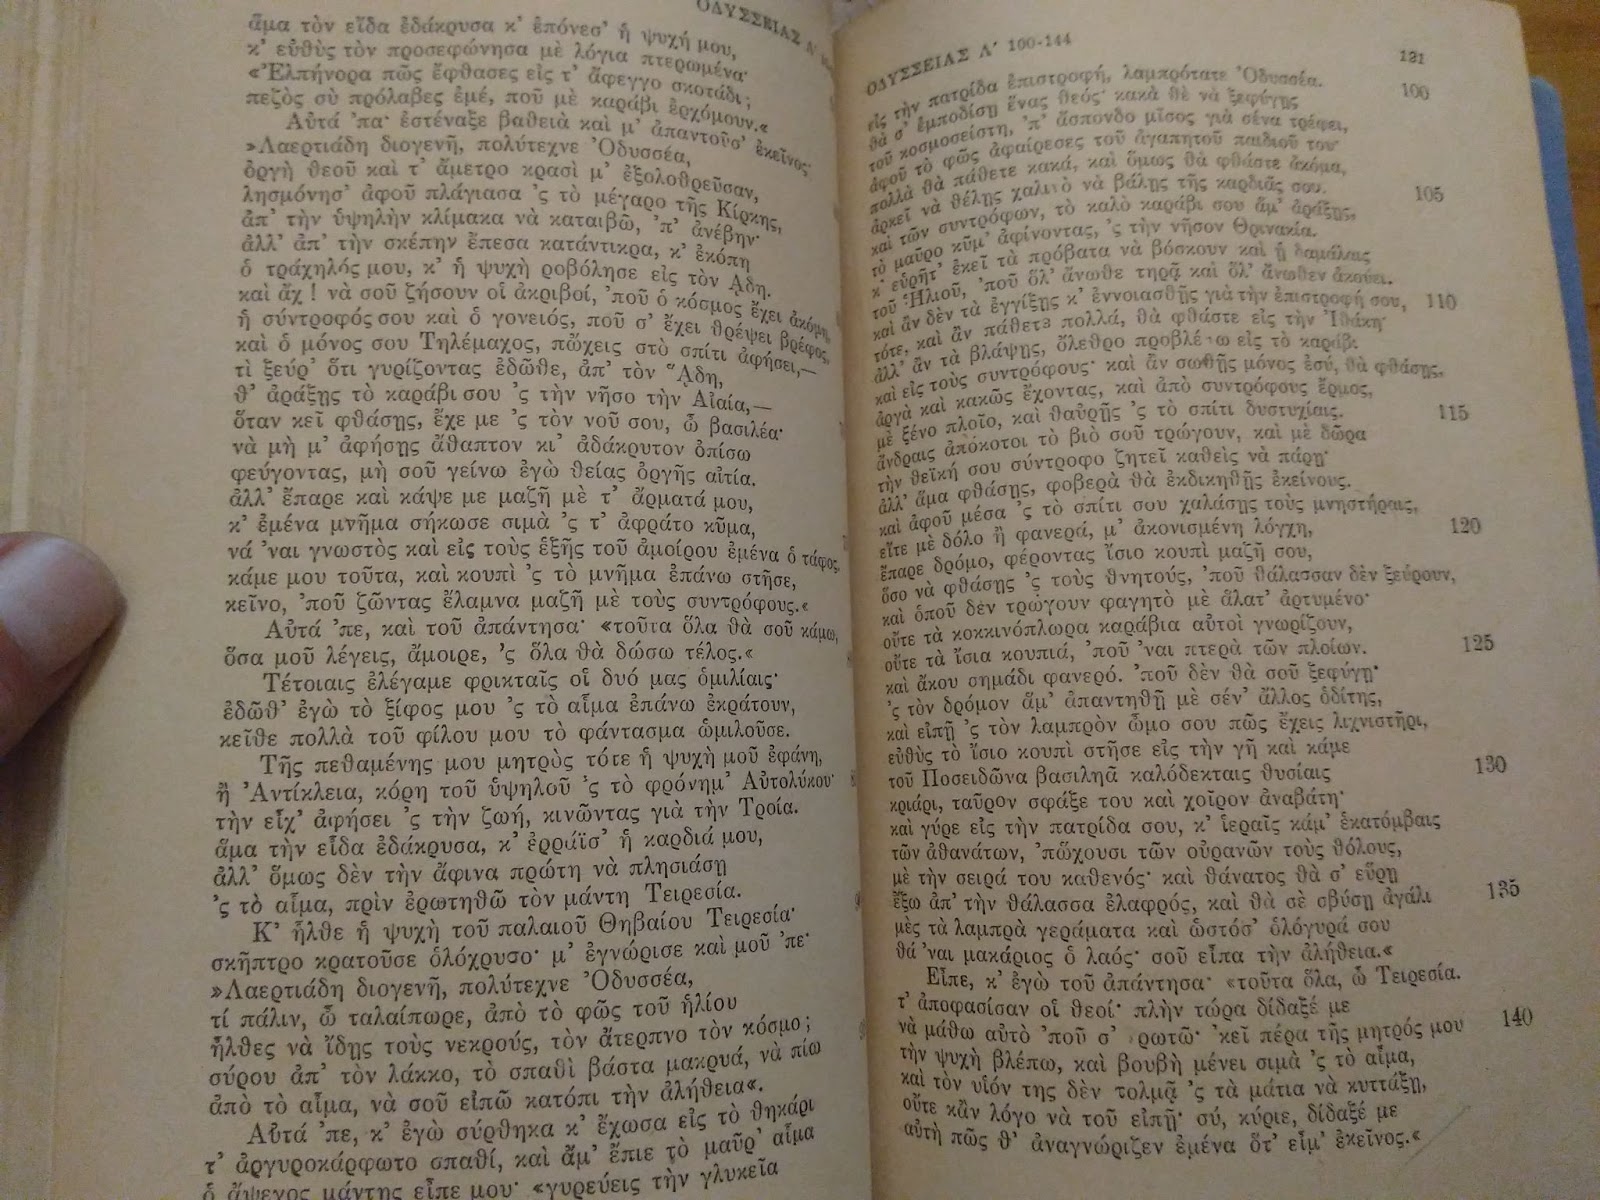 ΟΔΥΣΣΕΙΑΣ Λ΄
ἅμα τὸν εἶδα ἐδάκρυσα κ' ἐπόνεσ' ἡ ψυχή μου,
κ' εὐθὺς τὸν προσεφώνησα μὲ λόγια πτερωμένα·
«Ἐλπήνορα πῶς ἔφθασες εἰς τ' ἄφεγγο σκοτάδι;
πεζὸς σὺ πρόλαβες ἐμέ, ποῦ μὲ καράβι ἐρχόμουν.«
Αὐτά 'πα· ἐστέναξε βαθειὰ καὶ μ' ἀπαντοῦσ' ἐκεῖνος·
»Λαερτιάδη διογενῆ, πολύτεχνε Ὀδυσσέα,
ὀργὴ θεοῦ καὶ τ' ἄμετρο κρασὶ μ' ἐξολοθρεῦσαν,
λησμόνησ' ἀφοῦ πλάγιασα 'ς τὸ μέγαρο τῆς Κίρκης,
ἀπ' τὴν ὑψηλὴν κλίμακα νὰ καταιβῶ, 'π' ἀνέβην·
ἀλλ' ἀπ' τὴν σκέπην ἔπεσα κατάντικρα, κ' ἐκόπη
ὁ τράχηλός μου, κ' ἡ ψυχὴ ροβόλησε εἰς τὸν ᾍδη.
καὶ ἄχ! νὰ σοῦ ζήσουν οἱ ἀκριβοί, 'ποῦ ὁ κόσμος ἔχει ἀκόμη,
ἡ σύντροφός σου καὶ ὁ γονειός, ποῦ σ' ἔχει θρέψει βρέφος,
καὶ ὁ μόνος σου Τηλέμαχος, πὤχεις στὸ σπίτι ἀφήσει,—
τὶ ξεύρ' ὅτι γυρίζοντας ἐδῶθε, ἀπ' τὸν ᾍδη,
θ' ἀράξῃς τὸ καράβι σου 'ς τὴν νῆσο τὴν Αἰαία,—
ὅταν κεῖ φθάσῃς, ἔχε με 'ς τὸν νοῦ σου, ὦ βασιλέα·
νὰ μὴ μ' ἀφήσῃς ἄθαπτον κι' ἀδάκρυτον ὀπίσω
φεύγοντας, μὴ σοῦ γείνω ἐγὼ θείας ὀργῆς αἰτία.
ἀλλ' ἔπαρε καὶ κάψε με μαζῆ μὲ τ' ἄρματά μου,
κ' ἐμένα μνῆμα σήκωσε σιμὰ 'ς τ' ἀφράτο κῦμα,
νά 'ναι γνωστὸς καὶ εἰς τοὺς ἑξῆς τοῦ ἀμοίρου ἐμένα ὁ τάφος,
κάμε μου τοῦτα, καὶ κουπὶ 'ς τὸ μνῆμα ἐπάνω στῆσε,
κεῖνο, 'ποῦ ζῶντας ἔλαμνα μαζῆ μὲ τοὺς συντρόφους.«
Αὐτά 'πε, καὶ τοῦ ἀπάντησα· «τοῦτα ὅλα θὰ σοῦ κάμω,
ὅσα μοῦ λέγεις, ἄμοιρε, 'ς ὅλα θὰ δώσω τέλος.«
Τέτοιαις ἐλέγαμε φρικταῖς οἱ δυό μας ὁμιλίαις·
ἐδῶθ' ἐγὼ τὸ ξίφος μου 'ς τὸ αἷμα ἐπάνω ἐκράτουν,
κεῖθε πολλὰ τοῦ φίλου μου τὸ φάντασμα ὡμιλοῦσε.
Τῆς πεθαμένης μου μητρὸς τότε ἡ ψυχὴ μοῦ ἐφάνη,
ἡ Ἀντίκλεια, κόρη τοῦ ὑψηλοῦ 'ς τὸ φρόνημ' Αὐτολύκου·
τὴν εἶχ' ἀφήσει 'ς τὴν ζωή, κινῶντας γιὰ τὴν Τροία.
ἅμα τὴν εἶδα ἐδάκρυσα, κ' ἐρράϊσ' ἡ καρδιά μου,
ἀλλ' ὅμως δὲν τὴν ἄφινα πρώτη νὰ πλησιάσῃ
'ς τὸ αἷμα, πρὶν ἐρωτηθῶ τὸν μάντη Τειρεσία.
Κ' ἦλθε ἡ ψυχὴ τοῦ παλαιοῦ Θηβαίου Τειρεσία·
σκῆπτρο κρατοῦσε ὁλόχρυσο· μ' ἐγνώρισε καὶ μοῦ 'πε·
»Λαερτιάδη διογενῆ, πολύτεχνε Ὀδυσσέα,
τί πάλιν, ὦ ταλαίπωρε, ἀπὸ τὸ φῶς τοῦ ἡλίου
ἦλθες νὰ ἴδῃς τοὺς νεκρούς, τὸν ἄτερπνο τὸν κόσμο;
σύρου ἀπ' τὸν λάκκο, τὸ σπαθὶ βάστα μακρυά, νὰ πίω
ἀπὸ τὸ αἷμα, νὰ σοῦ εἰπῶ κατόπι τὴν ἀλήθεια«.
Αὐτά 'πε, κ' ἐγὼ σύρθηκα κ' ἔχωσα εἰς τὸ θηκάρι
τ' ἀργυροκάρφωτο σπαθί, καὶ ἅμ' ἔπιε τὸ μαῦρ' αἷμα
ὁ ἄψεγος μάντης εἶπε μου· «γυρεύεις τὴν γλυκεῖα
ΟΔΥΣΣΕΙΑΣ Λ΄ 100-144 121
εἰς τὴν πατρίδα ἐπιστροφή, λαμπρότατε Ὀδυσσέα. 100
θὰ σ' ἐμποδίσῃ ἕνας θεός· κακὰ θὲ νὰ ξεφύγῃς
τοῦ κοσμοσείστη, 'π' ἄσπονδο μῖσος γιὰ σένα τρέφει,
ἀφοῦ τὸ φῶς ἀφαίρεσες τοῦ ἀγαπητοῦ παιδιοῦ του·
πολλὰ θὰ πάθετε κακά, καὶ ὅμως θὰ φθάστε ἀκόμα,
ἀρκεῖ νὰ θέλῃς χαλινὸ νὰ βάλῃς τῆς καρδιᾶς σου. 105
καὶ τῶν συντρόφων, τὸ καλὸ καράβι σου ἅμ' ἀράξῃς,
τὸ μαῦρο κῦμ' ἀφίνοντας, 'ς τὴν νῆσον Θρινακία.
κ' εὑρῆτ' ἐκεῖ τὰ πρόβατα νὰ βόσκουν καὶ ᾑ δαμάλαις
τοῦ Ἡλιοῦ, 'ποῦ ὅλ' ἄνωθε τηρᾷ καὶ ὅλ' ἄνωθεν ἀκούει.
καὶ ἂν δὲν τὰ ἐγγίξῃς κ' ἐννοιασθῇς γιὰ τὴν ἐπιστροφή σου, 110
τότε, καὶ ἂν πάθετε πολλά, θὰ φθάστε εἰς τὴν Ἰθάκη·
ἀλλ' ἂν τὰ βλάψῃς, ὄλεθρο προβλέπω εἰς τὸ καράβι
καὶ εἰς τοὺς συντρόφους· καὶ ἂν σωθῇς μόνος ἐσύ, θὰ φθάσῃς,
ἀργὰ καὶ κακῶς ἔχοντας, καὶ ἀπὸ συντρόφους ἔρμος,
μὲ ξένο πλοῖο, καὶ θαὕρῃς 'ς τὸ σπίτι δυστυχίαις. 115
ἄνδραις ἀπόκοτοι τὸ βιὸ σοῦ τρώγουν, καὶ μὲ δῶρα
τὴν θεϊκή σου σύντροφο ζητεῖ καθεὶς νὰ πάρῃ·
ἀλλ' ἅμα φθάσῃς, φοβερὰ θὰ ἐκδικηθῇς ἐκείνους.
καὶ ἀφοῦ μέσα 'ς τὸ σπίτι σου χαλάσῃς τοὺς μνηστήραις,
εἴτε μὲ δόλο ἢ φανερά, μ' ἀκονισμένη λόγχη, 120
ἔπαρε δρόμο, φέροντας ἴσιο κουπὶ μαζῆ σου,
ὅσο νὰ φθάσῃς 'ς τοὺς θνητούς, 'ποῦ θάλασσαν δὲν ξεύρουν,
καὶ ὁποῦ δὲν τρώγουν φαγητὸ μὲ ἅλατ' ἀρτυμένο·
οὔτε τὰ κοκκινόπλωρα καράβια αὐτοὶ γνωρίζουν,
οὔτε τὰ ἴσια κουπιά, 'ποῦ 'ναι πτερὰ τῶν πλοίων. 125
καὶ ἄκου σημάδι φανερό. 'ποῦ δὲν θὰ σοῦ ξεφύγῃ·
'ς τὸν δρόμον ἅμ' ἀπαντηθῇ μὲ σέν' ἄλλος ὁδίτης,
καὶ εἰπῇ 'ς τὸν λαμπρὸν ὦμο σου πῶς ἔχεις λιχνιστῆρι,
εὐθὺς τὸ ἴσιο κουπὶ στῆσε εἰς τὴν γῆ καὶ κάμε
τοῦ Ποσειδῶνα βασιληᾶ καλόδεκταις θυσίαις 130
κριάρι, ταῦρον σφάξε του καὶ χοῖρον ἀναβάτη·
καὶ γύρε εἰς τὴν πατρίδα σου, κ' ἱεραῖς κάμ' ἑκατόμβαις
τῶν ἀθανάτων, 'πὤχουσι τῶν οὐρανῶν τοὺς θόλους,
μὲ τὴν σειρά του καθενός· καὶ θάνατος θὰ σ' εὕρῃ
ἔξω ἀπ' τὴν θάλασσα ἐλαφρός, καὶ θὰ σὲ σβύσῃ ἀγάλι 135
μὲς τὰ λαμπρὰ γεράματα καὶ ὡστόσ' ὁλόγυρά σου
θά 'ναι μακάριος ὁ λαός· σοῦ εἶπα τὴν ἀλήθεια.«
Εἶπε, κ' ἐγὼ τοῦ ἀπάντησα· «τοῦτα ὅλα, ὦ Τειρεσία.
τ' ἀποφασίσαν οἱ θεοί· πλὴν τώρα δίδαξέ με
νὰ μάθω αὐτὸ 'ποῦ σ' ρωτῶ· 'κεῖ πέρα τῆς μητρός μου 140
τὴν ψυχὴ βλέπω, καὶ βουβὴ μένει σιμὰ 'ς τὸ αἷμα,
καὶ τὸν υἱόν της δὲν τολμᾷ 'ς τὰ μάτια νὰ κυττάξῃ,
οὔτε κἂν λόγο νὰ τοῦ εἰπῇ· σύ, κύριε, δίδαξέ με
αὐτὴ πῶς θ' ἀναγνώριζεν ἐμένα ὅτ' εἶμ' ἐκεῖνος.«